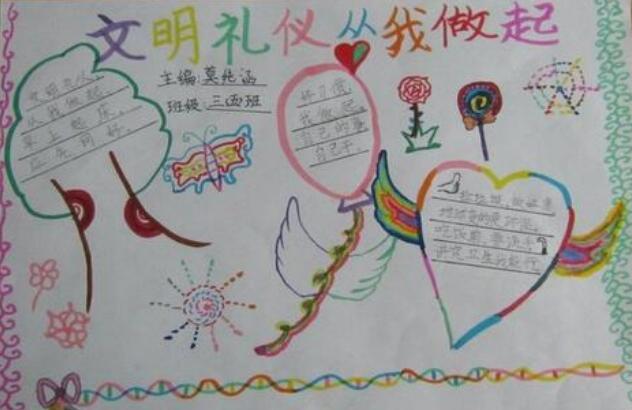 文明礼仪从我做起
主编:莫兆涵
班级:三西班
文明之从
从我做起
早上起床
应先问好
好习惯
我做起
自己的事
自己干
吃饭前 要洗手
讲究卫生我能行